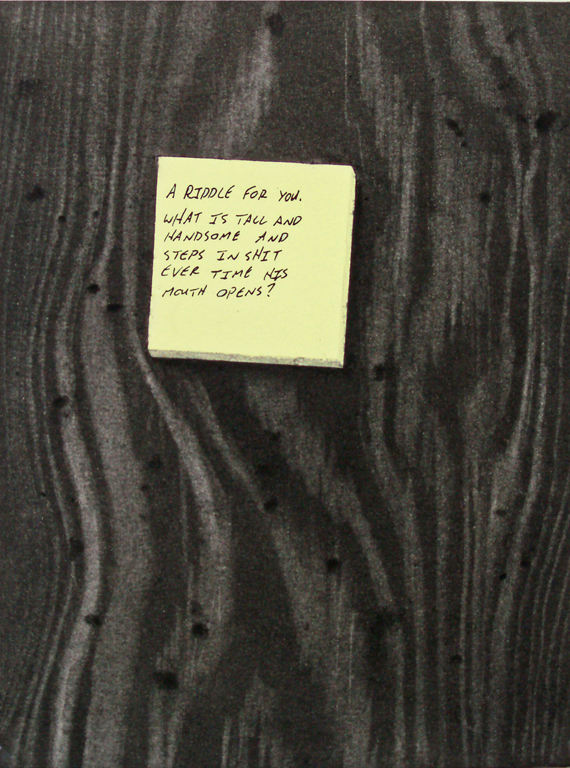 A RIDDLE FOR YOU.
WHAT IS TALL AND
HANDSOME AND
STEPS IN SHIT
EVER TIME HIS
MOUTH OPENS?